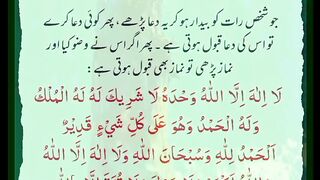 جو شخص رات کو بیدار ہو کر یہ دعا پڑھے، پھر کوئی دعا کرے
تو اس کی دعا قبول ہوتی ہے ۔ پھر اگر اس نے وضو کیا اور
نماز پڑھی تو نماز بھی قبول ہوتی ہے :
لَا اِلٰهَ اِلَّا اللّٰهُ وَحْدَهٗ لَا شَرِيْكَ لَهٗ لَهُ الْمُلْكُ
وَلَهُ الْحَمْدُ وَهُوَ عَلٰى كُلِّ شَيْءٍ قَدِيْرٌ
اَلْحَمْدُ لِلّٰهِ وَسُبْحَانَ اللّٰهِ وَلَا اِلٰهَ اِلَّا اللّٰهُ